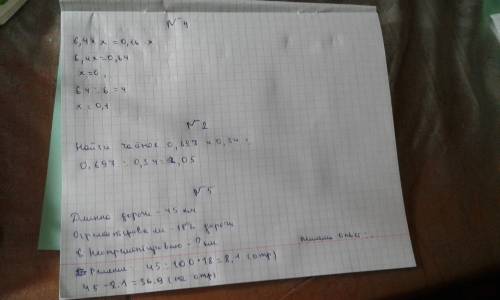 № 4
6,4 х х = 0,16 · х
6,4х = 0,64
х = 0,
64 : 6 = 4
х = 0,1
№ 2
Найти чайное 0,697 и 0,34 :
0,697 : 0,34 = 2,05
№ 5
Длинна дороги - 45 км
Отремонтировали - 18% дороги
Решение 45 : 100 * 18 = 8,1 (отр)
45 - 8,1 = 36,9 (не отр)